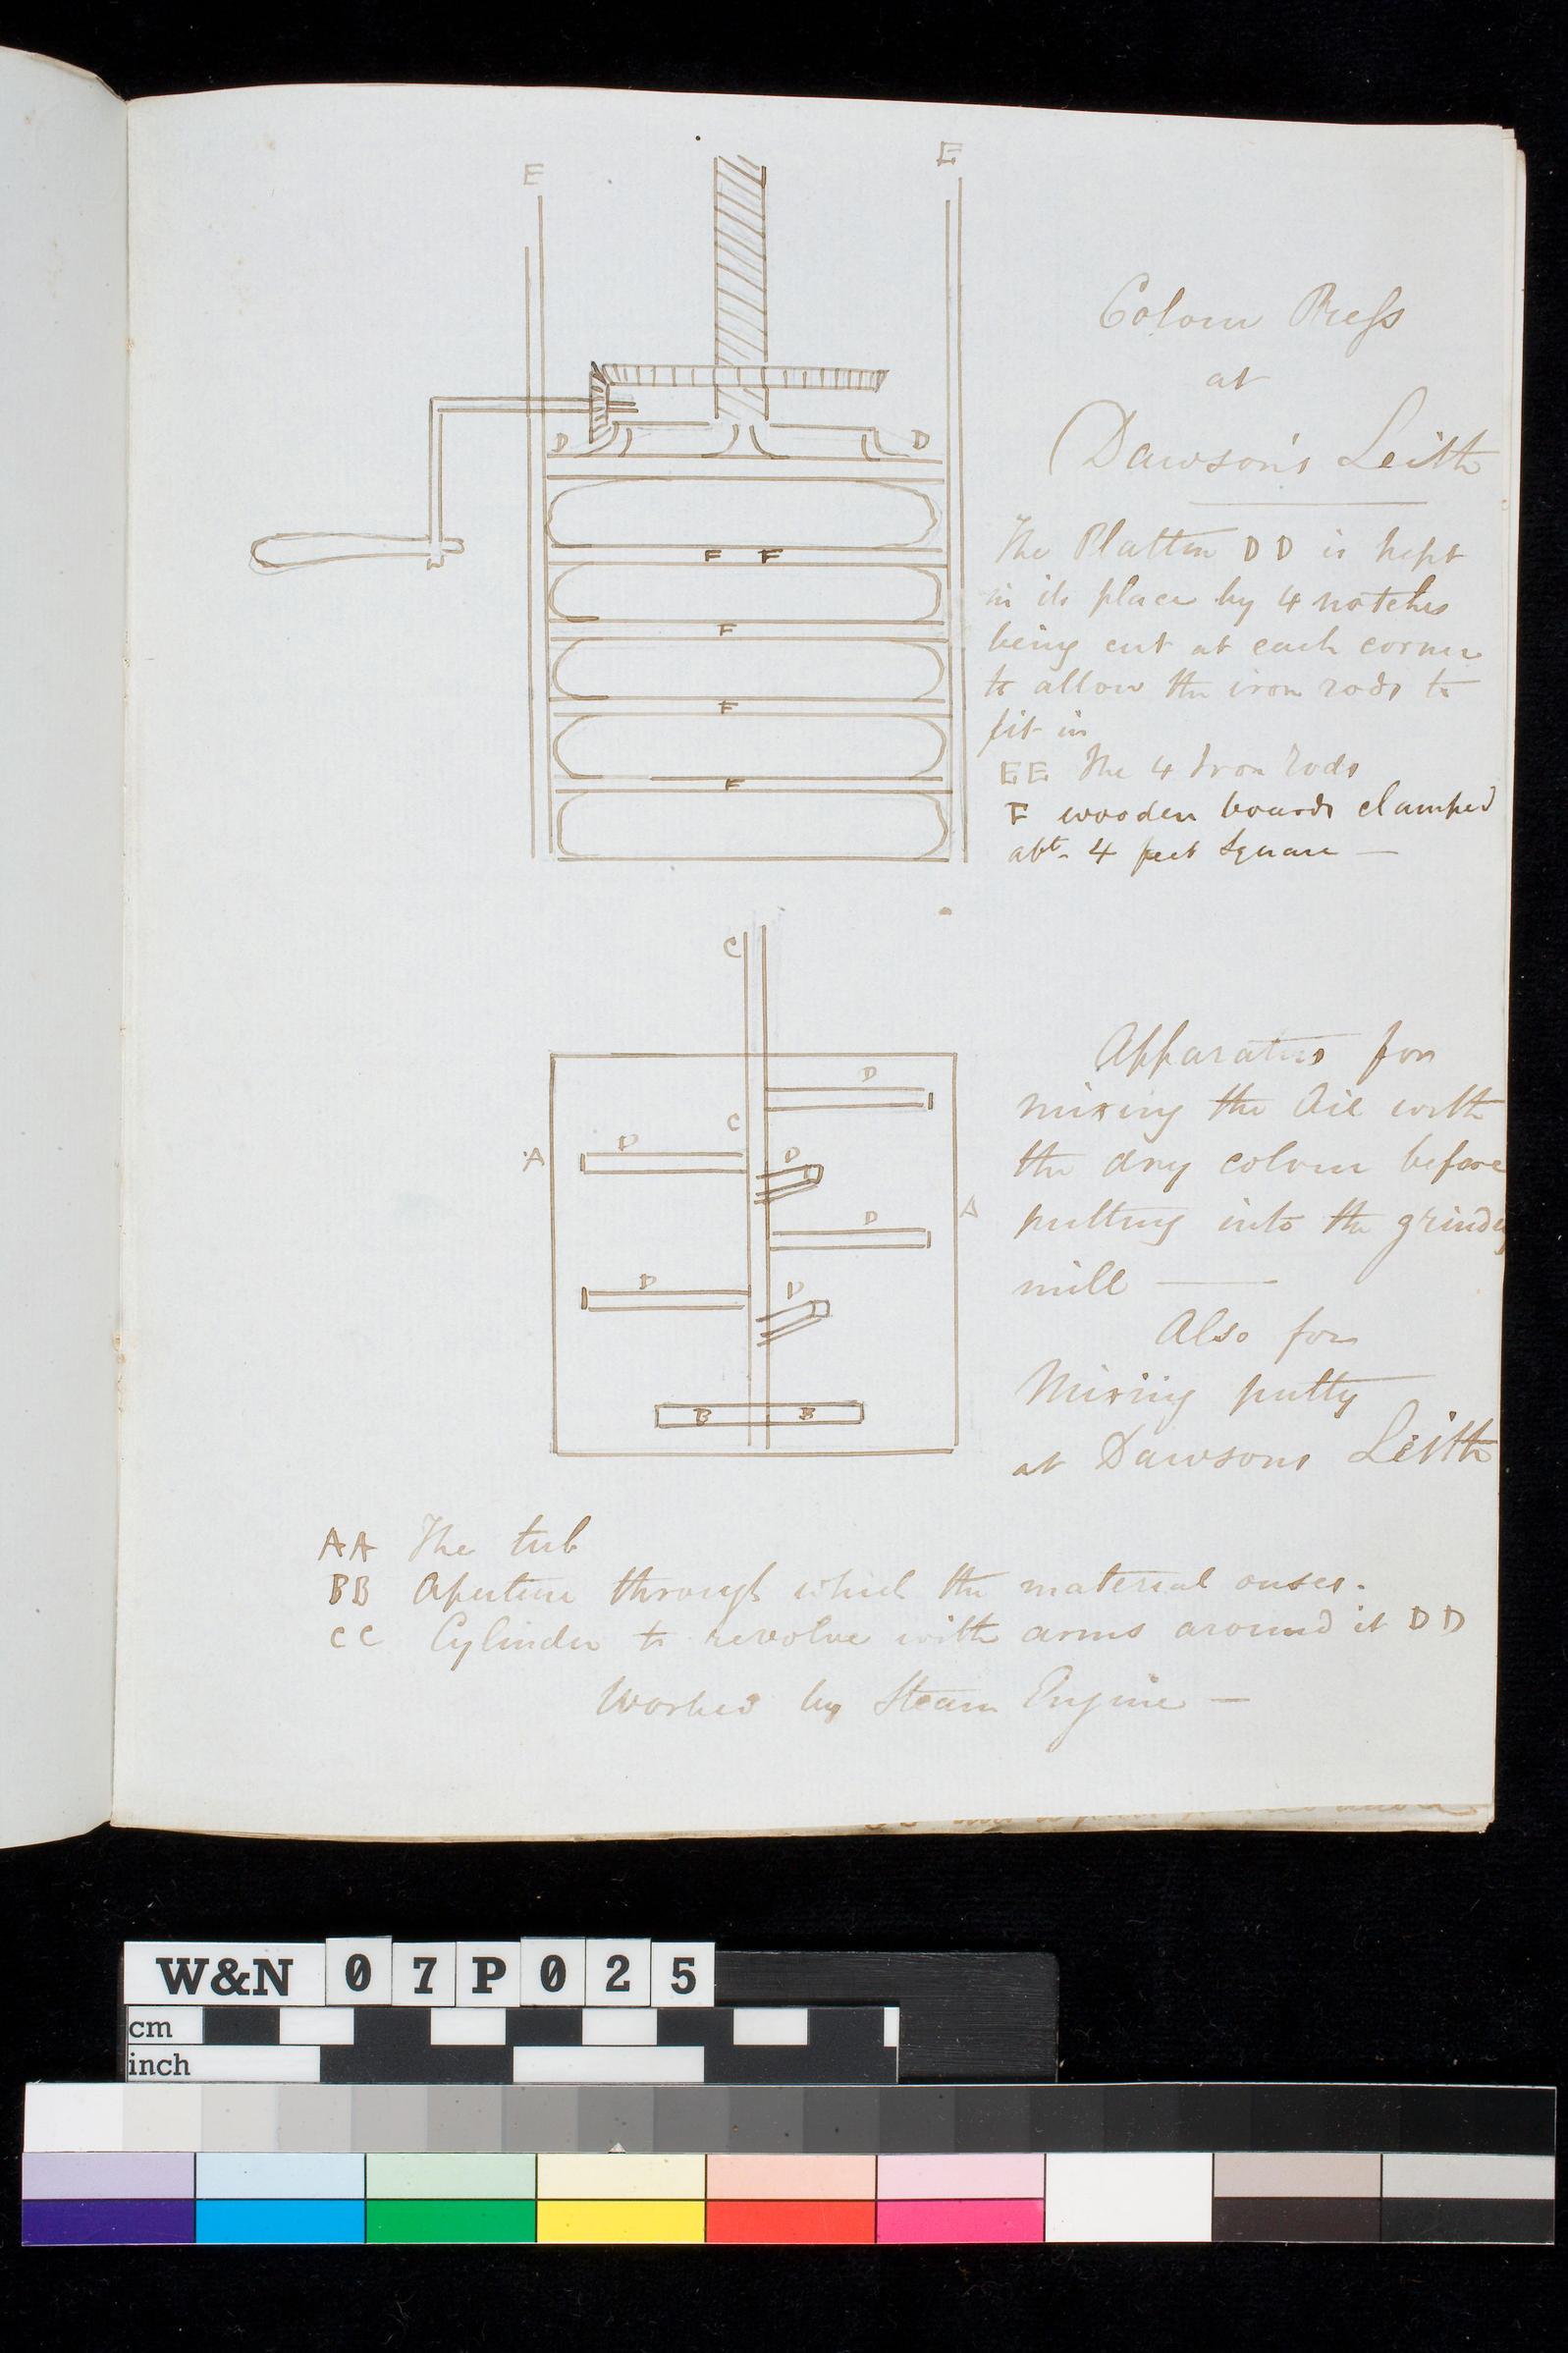 E
E
Colour Press
at
Dawson's Leith
D
D
The Platten DD is kept
in its place by 4 notches
being cut at each corner
to allow the iron rods to
fit in
EE The 4 Iron rods
F wooden boards clamped
abt. 4 feet square —
F F
F
F
F
C
C
D
D
D
D
D
D
A
A
B B
Apparatus for
mixing the Oil with
the dry colour before
putting into the grindg
mill —
Also for
Mixing putty
at Dawsons Leith
AA The tub
BB Aperture through which the material ouses.
CC Cylinder to revolve with arms around it DD
Worked by Steam Engine —
W&N 07P025
cm
inch